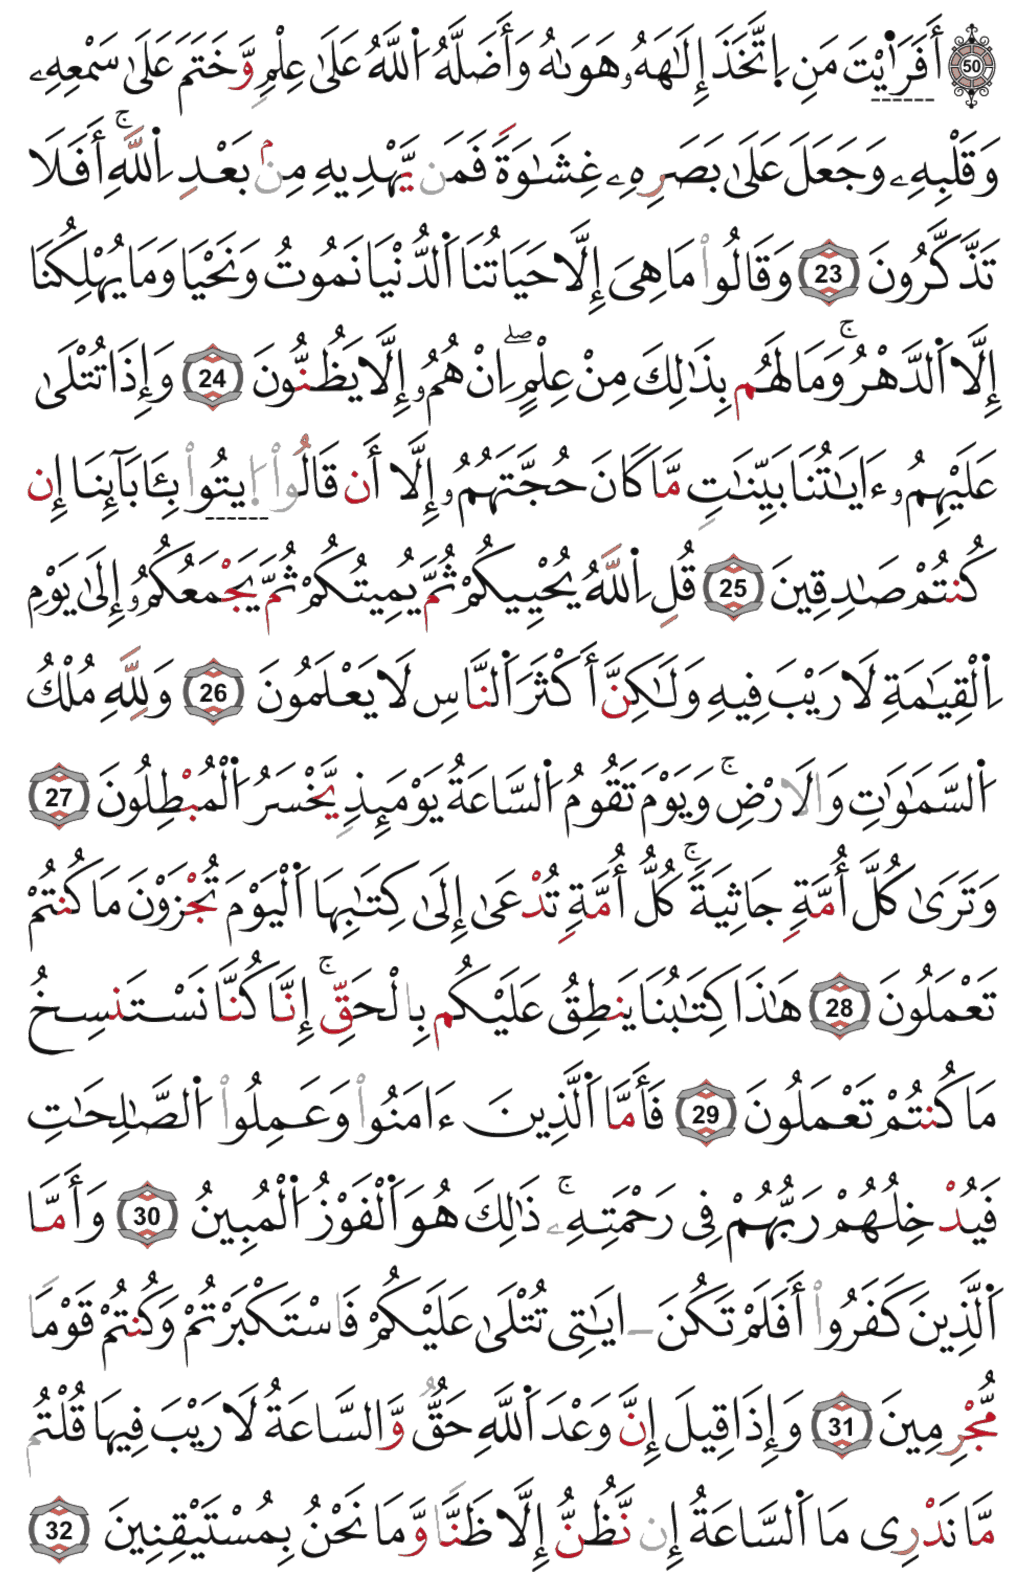 50 أَفَرَٰيْتَ مَنِ اِتَّخَذَ إِلَٰهَهُۥ هَوَىٰهُ وَأَضَلَّهُ اُ۬للَّهُ عَلَىٰ عِلْمٖ وَخَتَمَ عَلَىٰ سَمْعِهِۦ
وَقَلْبِهِۦ وَجَعَلَ عَلَىٰ بَصَرِهِۦ غِشَٰوَةٗ فَمَنْ يَّهْدِيهِ مِنۢ بَعْدِ اِ۬للَّهِۚ أَفَلَا
تَذَّكَّرُونَ 23 وَقَالُواْ مَا هِيَ إِلَّا حَيَاتُنَا اَ۬لدُّنْيَا نَمُوتُ وَنَحْيَا وَمَا يُهْلِكُنَا
إِلَّا اَ۬لدَّهْرُۚ وَمَا لَهُم بِذَٰلِكَ مِنْ عِلْمٍۖ اِنْ هُمُۥ إِلَّا يَظُنُّونَ 24 وَإِذَا تُتْلَىٰ
عَلَيْهِمُۥ ءَايَٰتُنَا بَيِّنَٰتٖ مَّا كَانَ حُجَّتَهُمُۥ إِلَّا أَن قَالُواْ اُ۟يتُواْ بِـَٔابَآئِنَا إِن
كُنتُمْ صَٰدِقِينَ 25 قُلِ اِ۬للَّهُ يُحْيِيكُمْ ثُمَّ يُمِيتُكُمْ ثُمَّ يَجْمَعُكُمُۥ إِلَىٰ يَوْمِ
اِ۬لْقِيَٰمَةِ لَا رَيْبَ فِيهِ وَلَٰكِنَّ أَكْثَرَ اَ۬لنَّاسِ لَا يَعْلَمُونَ 26 وَلِلَّهِ مُلْكُ
اُ۬لسَّمَٰوَٰتِ وَالَارْضِۚ وَيَوْمَ تَقُومُ اُ۬لسَّاعَةُ يَوْمَئِذٖ يَّخْسَرُ اُ۬لْمُبْطِلُونَ 27
وَتَرَىٰ كُلَّ أُمَّةٖ جَاثِيَةٗۚ كُلُّ أُمَّةٖ تُدْعَىٰ إِلَىٰ كِتَٰبِهَا اَ۬لْيَوْمَ تُجْزَوْنَ مَا كُنتُمْ
تَعْمَلُونَ 28 هَٰذَا كِتَٰبُنَا يَنطِقُ عَلَيْكُم بِالْحَقِّۚ إِنَّا كُنَّا نَسْتَنسِخُ
مَا كُنتُمْ تَعْمَلُونَ 29 فَأَمَّا اَ۬لَّذِينَ ءَامَنُواْ وَعَمِلُواْ اُ۬لصَّٰلِحَٰتِ
فَيُدْخِلُهُمْ رَبُّهُمْ فِي رَحْمَتِهِۦۚ ذَٰلِكَ هُوَ اَ۬لْفَوْزُ اُ۬لْمُبِينُ 30 وَأَمَّا
اَ۬لَّذِينَ كَفَرُواْ أَفَلَمْ تَكُنَ ـ ايَٰتِي تُتْلَىٰ عَلَيْكُمْ فَاسْتَكْبَرْتُمْ وَكُنتُمْ قَوْمٗا
مُّجْرِمِينَ 31 وَإِذَا قِيلَ إِنَّ وَعْدَ اَ۬للَّهِ حَقّٞ وَّالسَّاعَةُ لَا رَيْبَ فِيهَا قُلْتُم
مَّا نَدْرِي مَا اَ۬لسَّاعَةُ إِن نَّظُنُّ إِلَّا ظَنّٗا وَّمَا نَحْنُ بِمُسْتَيْقِنِينَ 32